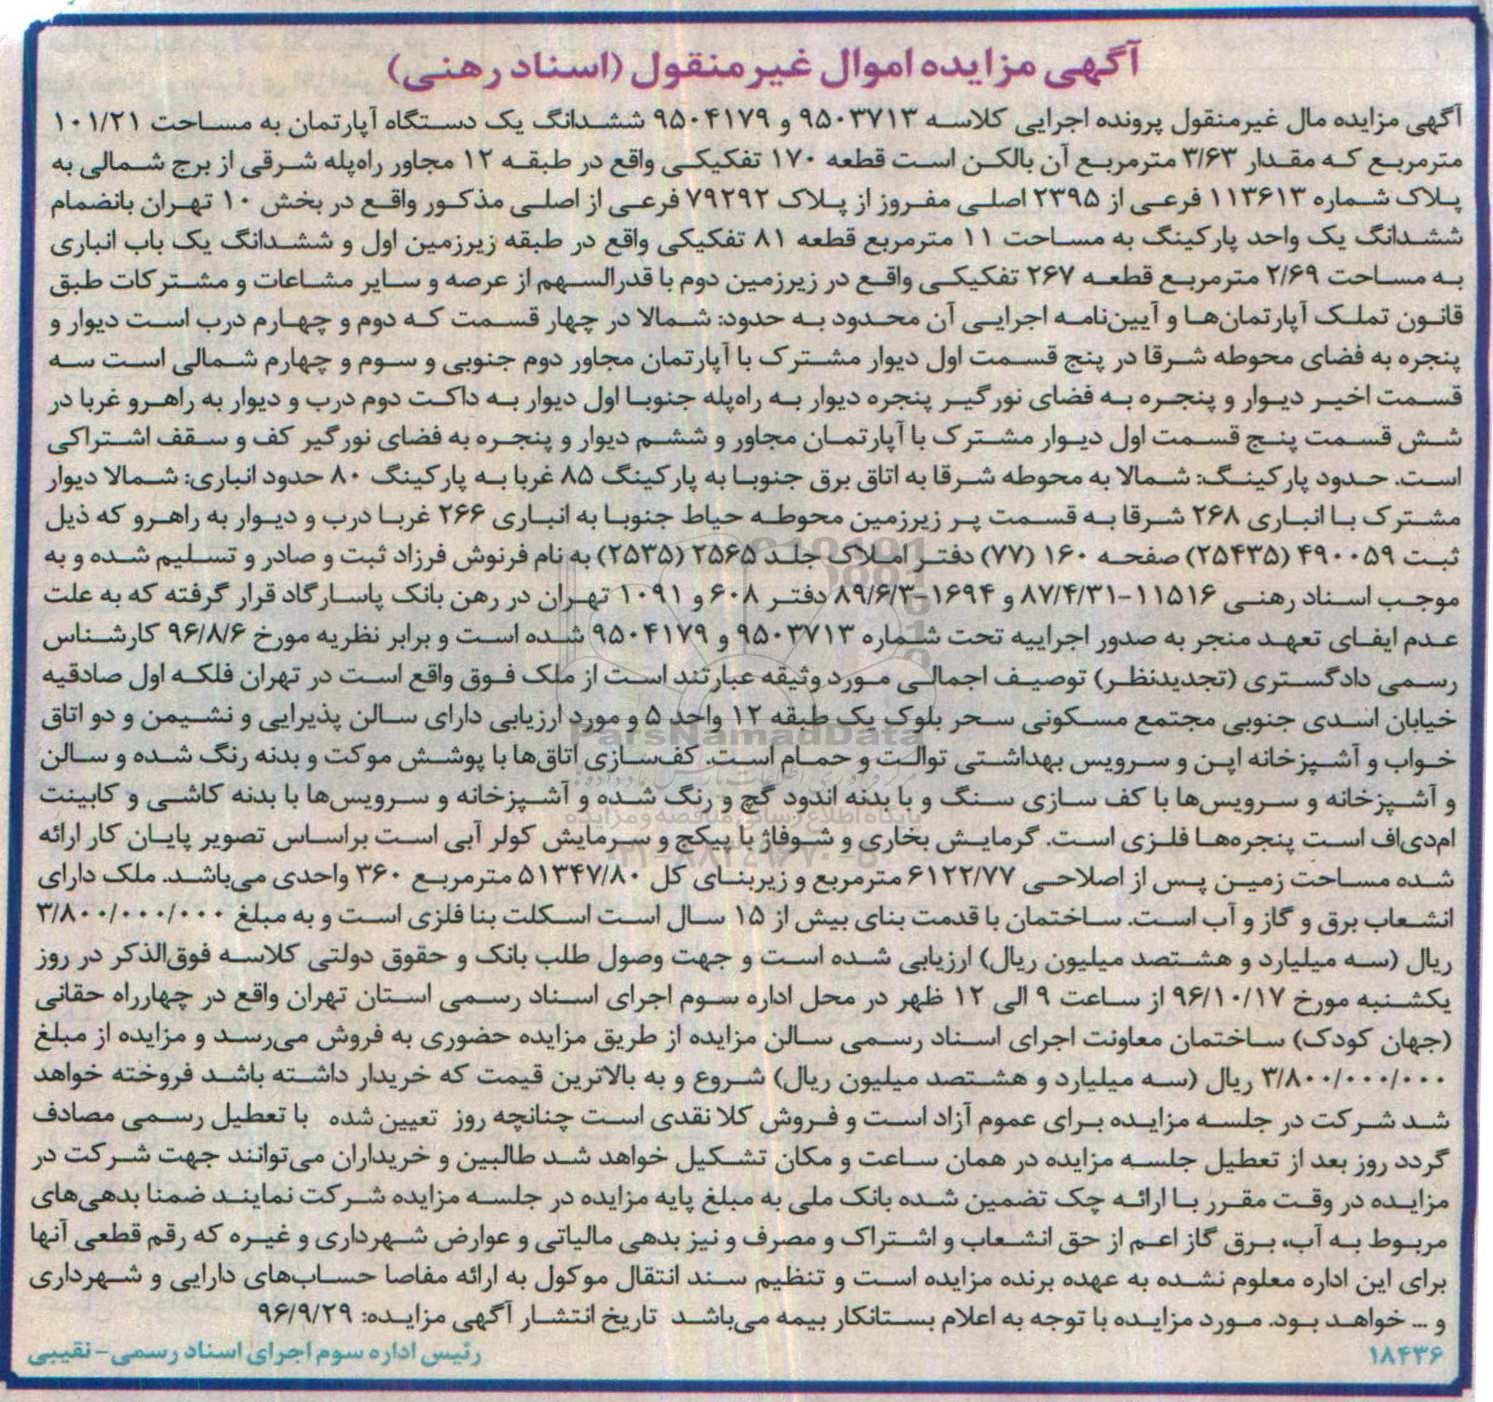 آگهی مزایده اموال غیرمنقول (اسناد رهنی)
آگهی مزایده مال غیرمنقول پرونده اجرایی کلاسه ۹۵۰۳۷۱۳ و ۹۵۰۴۱۷۹ ششدانگ یک دستگاه آپارتمان به مساحت ۱۰۱/۲۱
مترمربع که مقدار ۳/۶۳ مترمربع آن بالکن است قطعه ۱۷۰ تفکیکی واقع در طبقه ۱۲ مجاور راه‌پله شرقی از برج شمالی به
پلاک شماره ۱۱۳۶۱۳ فرعی از ۲۳۹۵ اصلی مفروز از پلاک ۷۹۲۹۲ فرعی از اصلی مذکور واقع در بخش ۱۰ تهران بانضمام
ششدانگ یک واحد پارکینگ به مساحت ۱۱ مترمربع قطعه ۸۱ تفکیکی واقع در طبقه زیرزمین اول و ششدانگ یک باب انباری
به مساحت ۲/۶۹ مترمربع قطعه ۲۶۷ تفکیکی واقع در زیرزمین دوم با قدرالسهم از عرصه و سایر مشاعات و مشترکات طبق
قانون تملک آپارتمان‌ها و آیین‌نامه اجرایی آن محدود به حدود: شمالا در چهار قسمت که دوم و چهارم درب است دیوار و
پنجره به فضای محوطه شرقا در پنج قسمت اول دیوار مشترک با آپارتمان مجاور دوم جنوبی و سوم و چهارم شمالی است سه
قسمت اخیر دیوار و پنجره به فضای نورگیر پنجره دیوار به راه‌پله جنوبا اول دیوار به داکت دوم درب و دیوار به راهرو غربا در
شش قسمت پنج قسمت اول دیوار مشترک با آپارتمان مجاور و ششم دیوار و پنجره به فضای نورگیر کف و سقف اشتراکی
است. حدود پارکینگ: شمالا به محوطه شرقا به اتاق برق جنوبا به پارکینگ ۸۵ غربا به پارکینگ ۸۰ حدود انباری: شمالا دیوار
مشترک با انباری ۲۶۸ شرقا به قسمت پر زیرزمین محوطه حیاط جنوبا به انباری ۲۶۶ غربا درب و دیوار به راهرو که ذیل
ثبت ۴۹۰۰۵۹ (۲۵۴۳۵) صفحه ۱۶۰ (۷۷) دفتر املاک جلد ۲۵۶۵ (۲۵۳۵) به نام فرنوش فرزاد ثبت و صادر و تسلیم شده و به
موجب اسناد رهنی ۱۱۵۱۶-۸۷/۴/۳۱ و ۱۶۹۴-۸۹/۶/۳ دفتر ۶۰۸ و ۱۰۹۱ تهران در رهن بانک پاسارگاد قرار گرفته که به علت
عدم ایفای تعهد منجر به صدور اجراییه تحت شماره ۹۵۰۳۷۱۳ و ۹۵۰۴۱۷۹ شده است و برابر نظریه مورخ ۹۶/۸/۶ کارشناس
رسمی دادگستری (تجدیدنظر) توصیف اجمالی مورد وثیقه عبارتند است از ملک فوق واقع است در تهران فلکه اول صادقیه
خیابان اسدی جنوبی مجتمع مسکونی سحر بلوک یک طبقه ۱۲ واحد ۵ و مورد ارزیابی دارای سالن پذیرایی و نشیمن و دو اتاق
خواب و آشپزخانه اپن و سرویس بهداشتی توالت و حمام است. کف‌سازی اتاق‌ها با پوشش موکت و بدنه رنگ شده و سالن
و آشپزخانه و سرویس‌ها با کف سازی سنگ و با بدنه اندود گچ و رنگ شده و آشپزخانه و سرویس‌ها با بدنه کاشی و کابینت
ام‌دی‌اف است پنجره‌ها فلزی است. گرمایش بخاری و شوفاژ با پیکج و سرمایش کولر آبی است براساس تصویر پایان کار ارائه
شده مساحت زمین پس از اصلاحی ۶۱۲۲/۷۷ مترمربع و زیربنای کل ۵۱۳۴۷/۸۰ مترمربع ۳۶۰ واحدی می‌باشد. ملک دارای
انشعاب برق و گاز و آب است. ساختمان با قدمت بنای بیش از ۱۵ سال است اسکلت بنا فلزی است و به مبلغ ۳/۸۰۰/۰۰۰/۰۰۰
ریال (سه میلیارد و هشتصد میلیون ریال) ارزیابی شده است و جهت وصول طلب بانک و حقوق دولتی کلاسه فوق‌الذکر در روز
یکشنبه مورخ ۹۶/۱۰/۱۷ از ساعت ۹ الی ۱۲ ظهر در محل اداره سوم اجرای اسناد رسمی استان تهران واقع در چهارراه حقانی
(جهان کودک) ساختمان معاونت اجرای اسناد رسمی سالن مزایده از طریق مزایده حضوری به فروش می‌رسد و مزایده از مبلغ
۳/۸۰۰/۰۰۰/۰۰۰ ریال (سه میلیارد و هشتصد میلیون ریال) شروع و به بالاترین قیمت که خریدار داشته باشد فروخته خواهد
شد شرکت در جلسه مزایده برای عموم آزاد است و فروش کلا نقدی است چنانچه روز تعیین شده با تعطیل رسمی مصادف
گردد روز بعد از تعطیل جلسه مزایده در همان ساعت و مکان تشکیل خواهد شد طالبین و خریداران می‌توانند جهت شرکت در
مزایده در وقت مقرر با ارائه چک تضمین شده بانک ملی به مبلغ پایه مزایده در جلسه مزایده شرکت نمایند ضمنا بدهی‌های
مربوط به آب، برق گاز اعم از حق انشعاب و اشتراک و مصرف و نیز بدهی مالیاتی و عوارض شهرداری و غیره که رقم قطعی آنها
برای این اداره معلوم نشده به عهده برنده مزایده است و تنظیم سند انتقال موکول به ارائه مفاصا حساب‌های دارایی و شهرداری
و ... خواهد بود. مورد مزایده با توجه به اعلام بستانکار بیمه می‌باشد تاریخ انتشار آگهی مزایده: ۹۶/۹/۲۹
۱۸۴۳۶ رئیس اداره سوم اجرای اسناد رسمی- نقیبی
ParsNamadData
پایگاه اطلاع رسانی مناقصه و مزایده